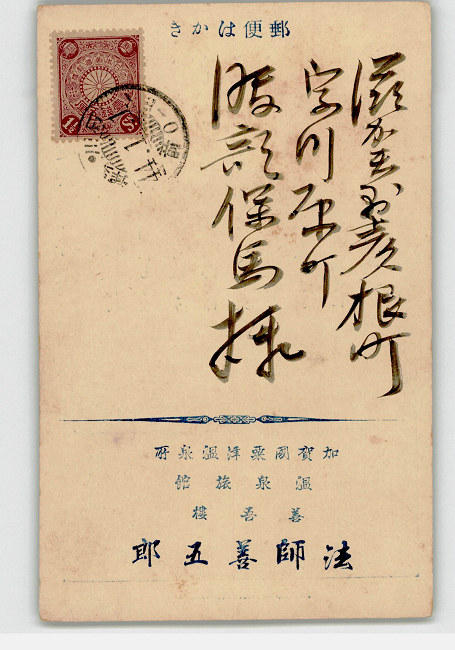 郵便はかき
滋賀縣彦根町
字川原町
服部保馬様
1½ Sn
加賀國粟津温泉所
温泉旅館
善吾樓
法師善五郎